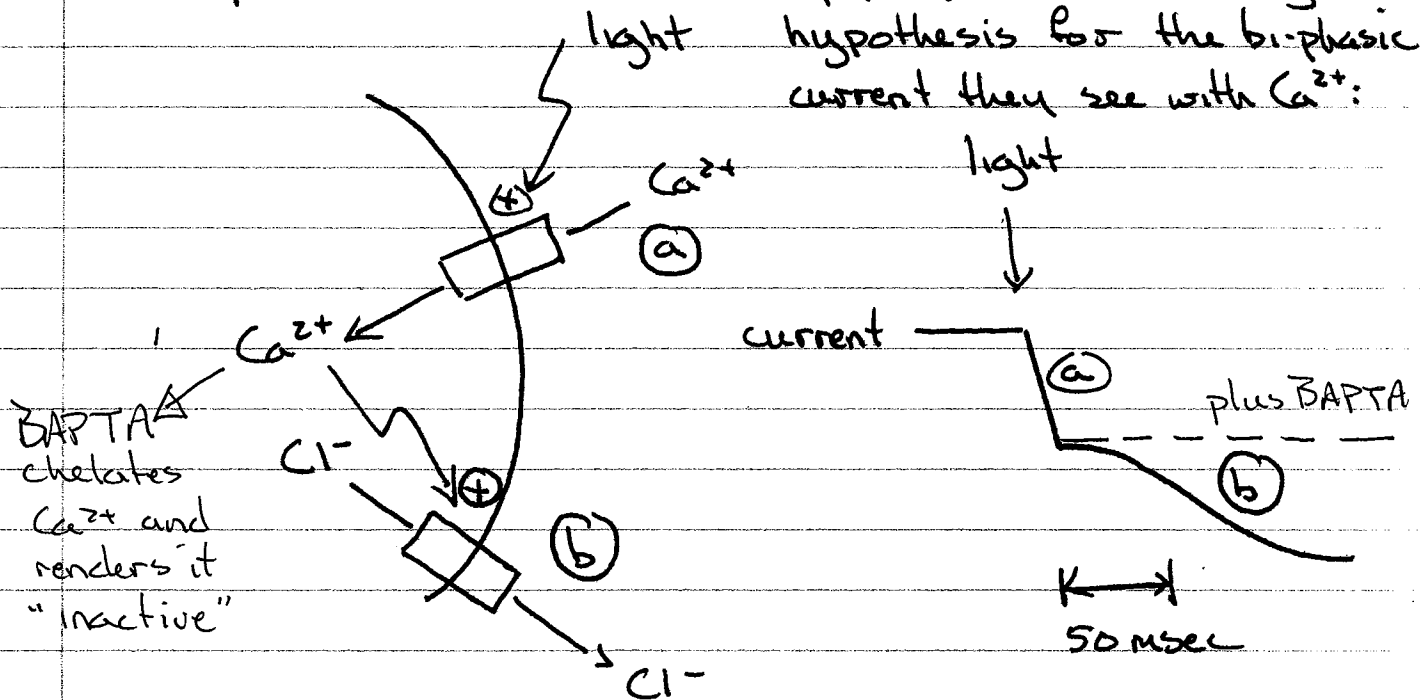 light hypothesis for the bi-phasic
current they see with Ca²⁺:
light
(+)
Ca²⁺
(a)
Ca²⁺
current
(a)
plus BAPTA
BAPTA
chelates
Ca²⁺ and
renders it
"inactive"
Cl⁻
(+)
(b)
(b)
50 msec
Cl⁻